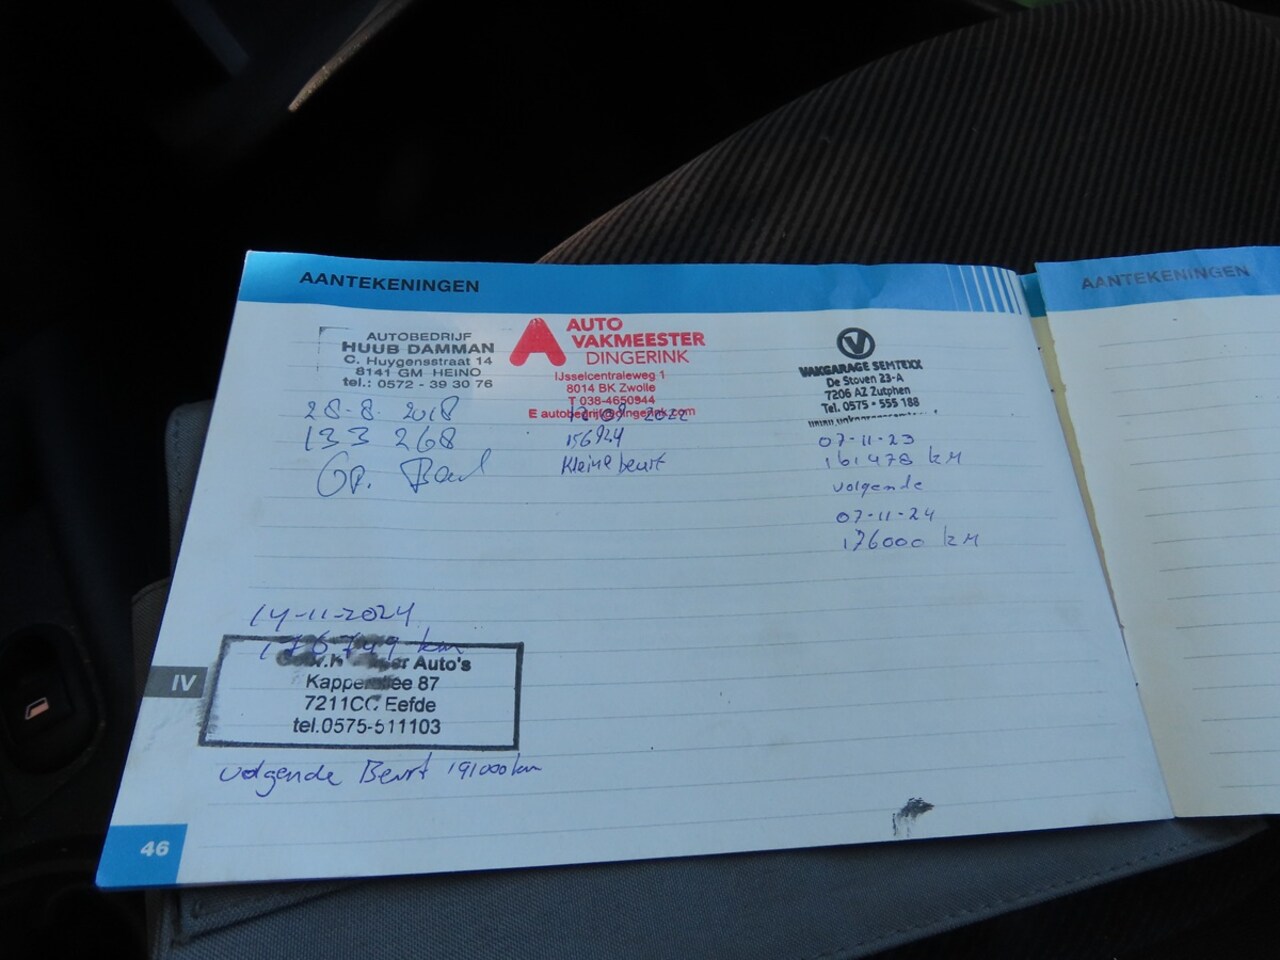 AANTEKENINGEN
AUTOBEDRIJF
HUUB DAMMAN
C. Huygensstraat 14
8141 GM HEINO
tel.: 0572 - 39 30 76
28-8-2018
133 268
Gr.
AUTO
VAKMEESTER
DINGERINK
IJsselcentraleweg 1
8014 BK Zwolle
T 038-4650944
E autobedrijf@dingerink.com
2022
156924
Kleine beurt
V
VAKGARAGE SEMTEXX
De Stoven 23-A
7206 AZ Zutphen
Tel. 0575 - 555 188
07-11-23
161478 KM
volgende
07-11-24
176000 KM
14-11-2024
176749 km
Auto's
87
7211CC Eefde
tel.0575-511103
volgende Beurt 191000km
IV
46
AANTEKENINGEN